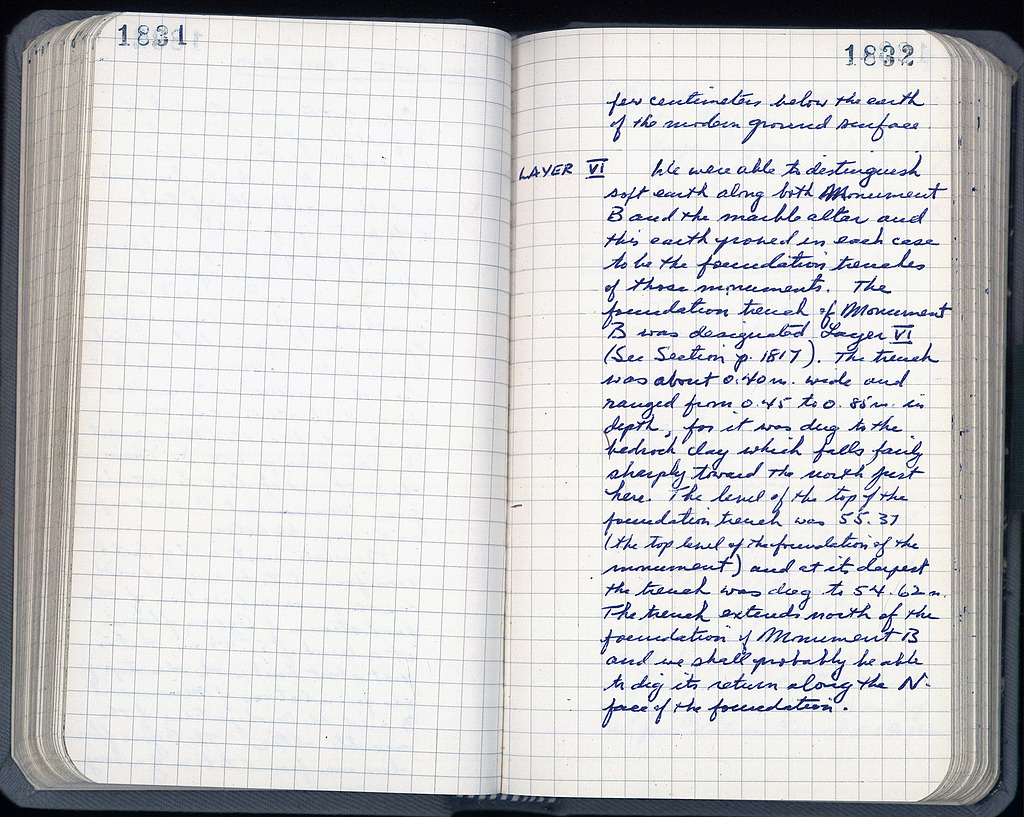 1831
1832
few centimeters below the earth
of the modern ground surface.
LAYER VI We were able to distinguish
soft earth along both Monument
B and the marble altar and
this earth proved in each case
to be the foundation trenches
of those monuments. The
foundation trench of Monument
B was designated Layer VI
(See Section p. 1817). The trench
was about 0.40 m. wide and
ranged from 0.45 to 0.85 m. in
depth, for it was dug to the
bedrock clay which falls fairly
sharply toward the north just
here. The level of the top of the
foundation trench was 55.37
(the top level of the foundation of the
monument) and at its deepest
the trench was dug to 54.62 m.
The trench extends north of the
foundation of Monument B
and we shall probably be able
to dig its return along the N.
face of the foundation.